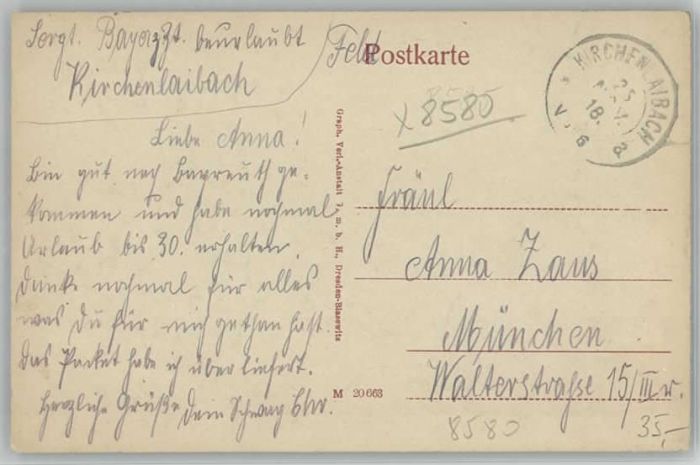 Sergt. Bayer z.Zt. beurlaubt
Kirchenlaibach
Feld Postkarte
x 8580
KIRCHENLAIBACH
25
NOV.
18.
V. 6 8
Liebe Anna!
Bin gut nach Bayreuth ge-
kommen und habe nochmal
Urlaub bis 30. erhalten.
Danke nochmal für alles
was Du für mich gethan hast.
Das Packet habe ich überliefert.
Herzliche Grüße Dein Schwag
Graph. Verl.-Anstalt G. m. b. H., Dresden-Blasewitz
M 20 663
Fräul
Anna Zaus
München
Walterstraße 15/III r.
8580
35,-